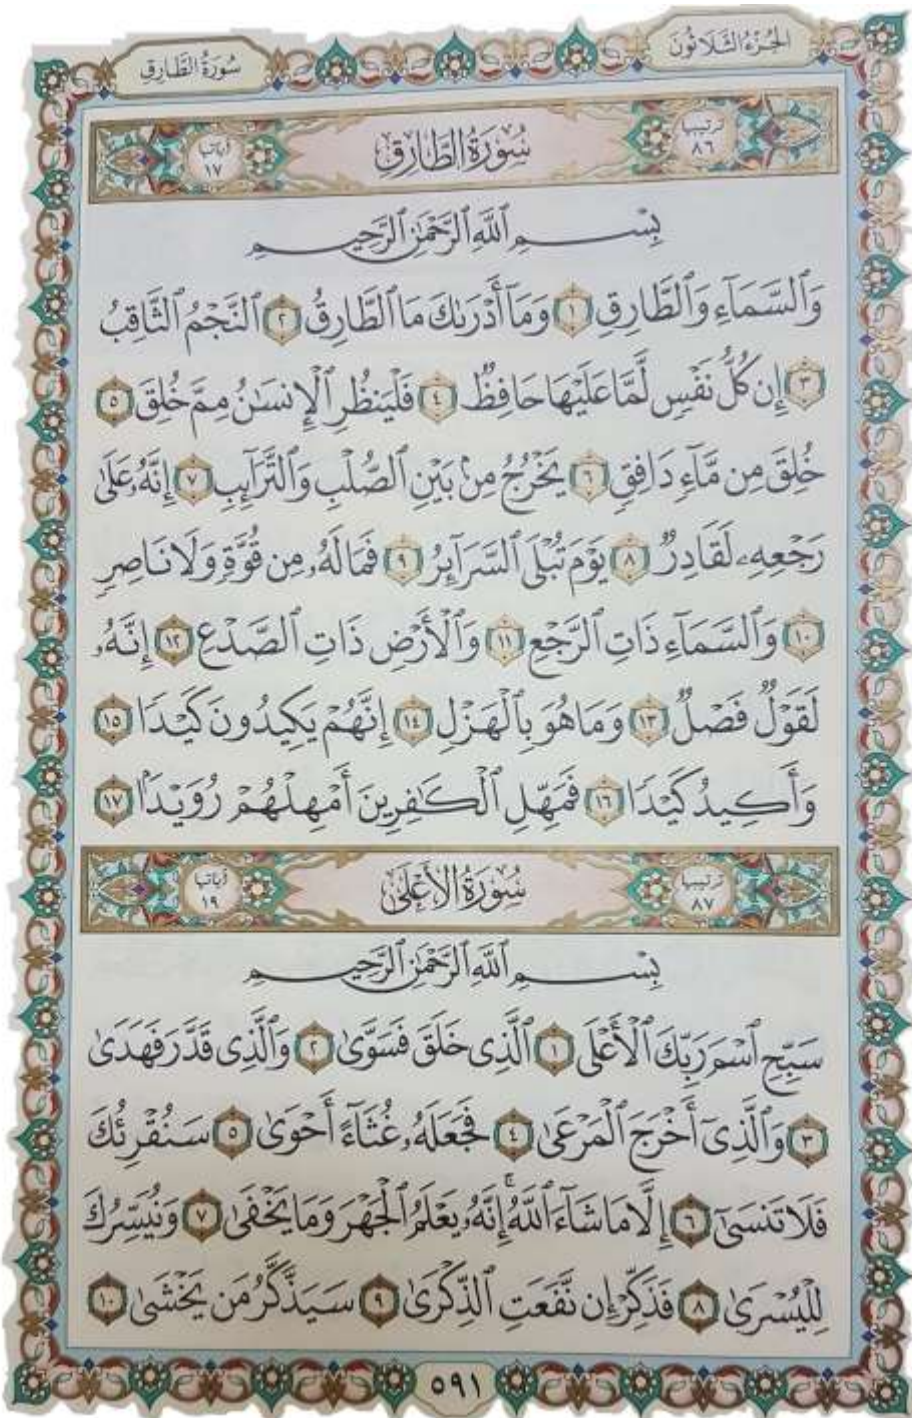 الجُزْءُ الثَّلَاثُونَ
سُورَةُ الطَّارِقِ
ترتيبها ٨٦
سُورَةُ الطَّارِقِ
آياتها ١٧
بِسْمِ ٱللَّهِ ٱلرَّحْمَٰنِ ٱلرَّحِيمِ
وَٱلسَّمَآءِ وَٱلطَّارِقِ ١ وَمَآ أَدْرَىٰكَ مَا ٱلطَّارِقُ ٢ ٱلنَّجْمُ ٱلثَّاقِبُ
٣ إِن كُلُّ نَفْسٍ لَّمَّا عَلَيْهَا حَافِظٌ ٤ فَلْيَنظُرِ ٱلْإِنسَٰنُ مِمَّ خُلِقَ ٥
خُلِقَ مِن مَّآءٍ دَافِقٍ ٦ يَخْرُجُ مِنۢ بَيْنِ ٱلصُّلْبِ وَٱلتَّرَآئِبِ ٧ إِنَّهُۥ عَلَىٰ
رَجْعِهِۦ لَقَادِرٌ ٨ يَوْمَ تُبْلَى ٱلسَّرَآئِرُ ٩ فَمَا لَهُۥ مِن قُوَّةٍ وَلَا نَاصِرٍ
١٠ وَٱلسَّمَآءِ ذَاتِ ٱلرَّجْعِ ١١ وَٱلْأَرْضِ ذَاتِ ٱلصَّدْعِ ١٢ إِنَّهُۥ
لَقَوْلٌ فَصْلٌ ١٣ وَمَا هُوَ بِٱلْهَزْلِ ١٤ إِنَّهُمْ يَكِيدُونَ كَيْدًا ١٥
وَأَكِيدُ كَيْدًا ١٦ فَمَهِّلِ ٱلْكَٰفِرِينَ أَمْهِلْهُمْ رُوَيْدًۢا ١٧
ترتيبها ٨٧
سُورَةُ الأَعْلَىٰ
آياتها ١٩
بِسْمِ ٱللَّهِ ٱلرَّحْمَٰنِ ٱلرَّحِيمِ
سَبِّحِ ٱسْمَ رَبِّكَ ٱلْأَعْلَى ١ ٱلَّذِى خَلَقَ فَسَوَّىٰ ٢ وَٱلَّذِى قَدَّرَ فَهَدَىٰ
٣ وَٱلَّذِىٓ أَخْرَجَ ٱلْمَرْعَىٰ ٤ فَجَعَلَهُۥ غُثَآءً أَحْوَىٰ ٥ سَنُقْرِئُكَ
فَلَا تَنسَىٰٓ ٦ إِلَّا مَا شَآءَ ٱللَّهُۚ إِنَّهُۥ يَعْلَمُ ٱلْجَهْرَ وَمَا يَخْفَىٰ ٧ وَنُيَسِّرُكَ
لِلْيُسْرَىٰ ٨ فَذَكِّرْ إِن نَّفَعَتِ ٱلذِّكْرَىٰ ٩ سَيَذَّكَّرُ مَن يَخْشَىٰ ١٠
٥٩١